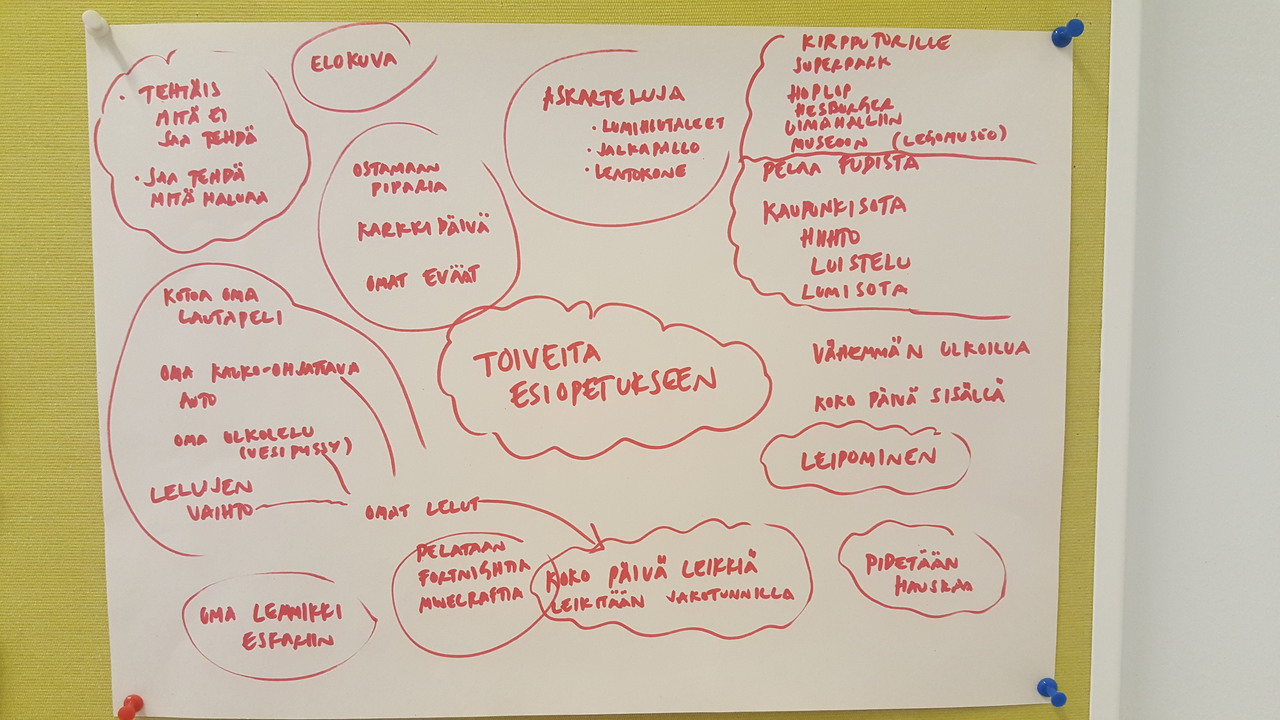 • TEHTÄIS
MITÄ EI
SAA TEHDÄ
• SAA TEHDÄ
MITÄ HALUAA
ELOKUVA
OSTAMAAN
PIPARIA
KARKKIPÄIVÄ
OMAT EVÄÄT
ASKARTELUJA
• LUMIHIUTALEET
• JALKAPALLO
• LENTOKONE
KIRPPUTORILLE
SUPERPARK
HOPLOP
HESBURGER
UIMAHALLIIN
MUSEOON (LEGOMUSEO)
PELAA FUDISTA
KAUPUNKISOTA
HIIHTO
LUISTELU
LUMISOTA
KOTOA OMA
LAUTAPELI
OMA KAUKO-OHJATTAVA
AUTO
OMA ULKOLELU
(VESIPYSSY)
LELUJEN
VAIHTO
OMAT LELUT
TOIVEITA
ESIOPETUKSEEN
VÄHEMMÄN ULKOILUA
KOKO PÄIVÄ SISÄLLÄ
LEIPOMINEN
OMA LEMMIKKI
ESKARIIN
PELATAAN
FORTNIGHTIA
MINECRAFTIA
KOKO PÄIVÄ LEIKKIÄ
LEIKITÄÄN JAKOTUNNILLA
PIDETÄÄN
HAUSKAA